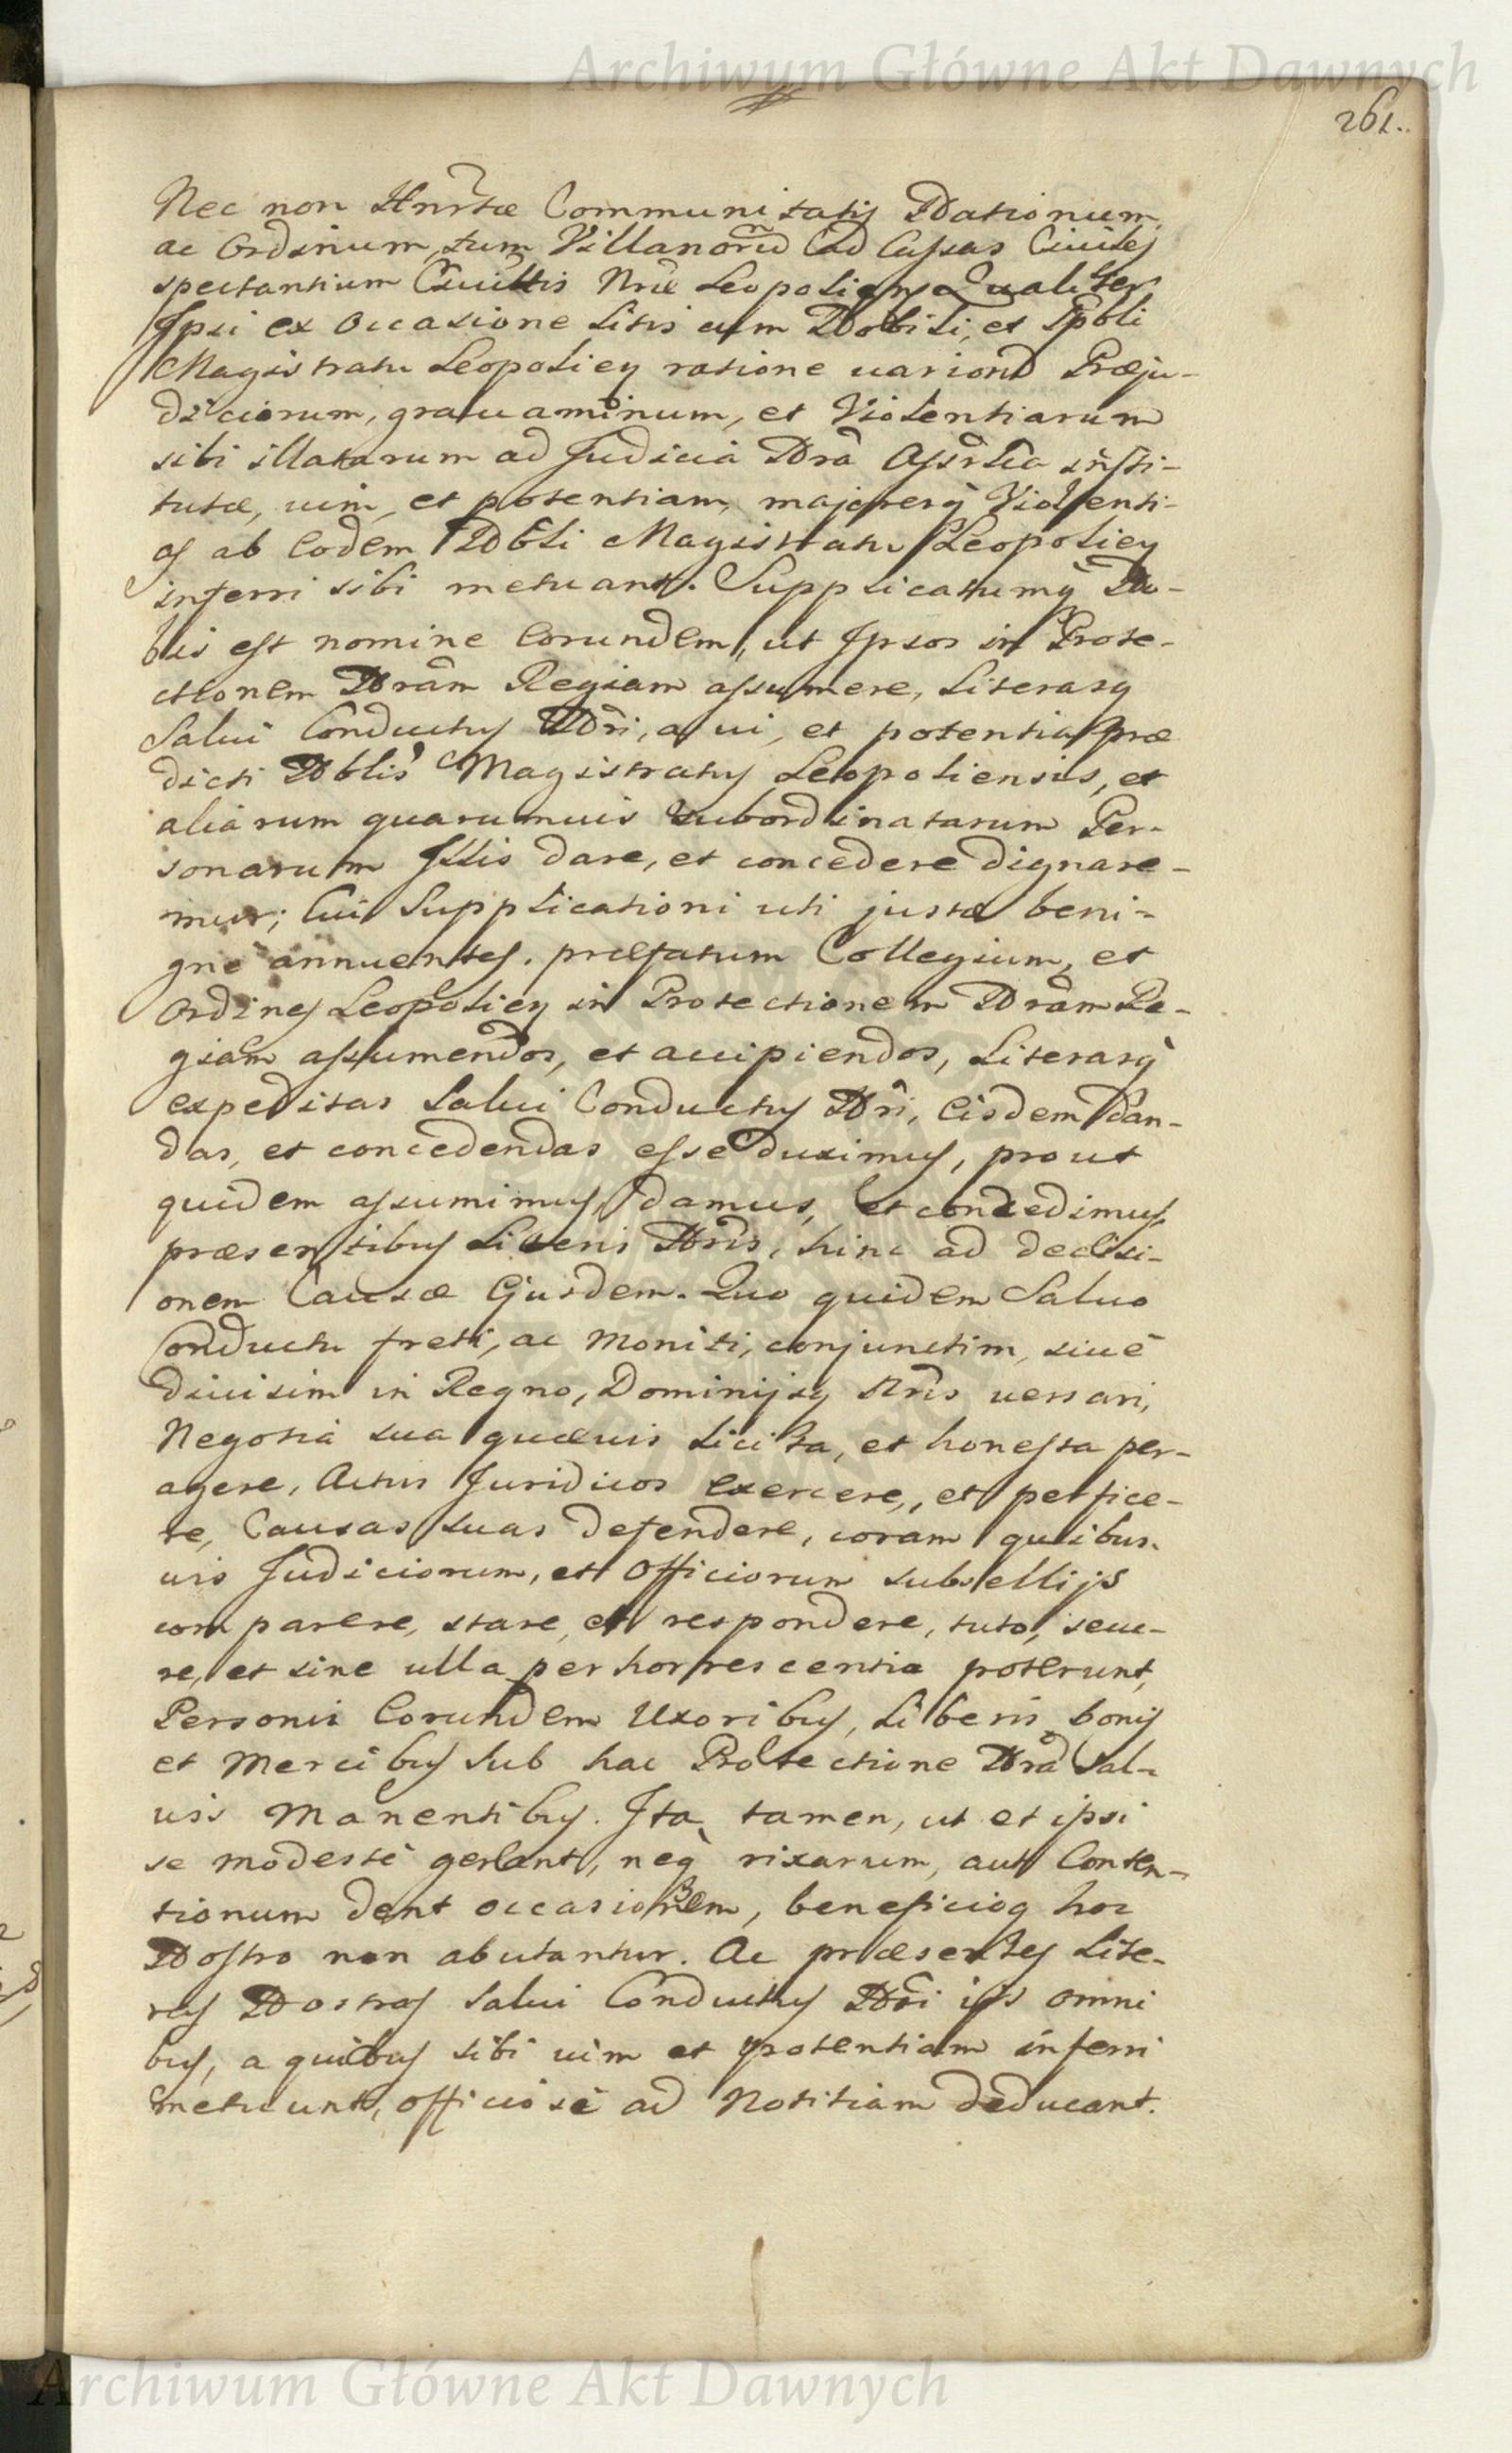 Archiwum Główne Akt Dawnych
261.
Nec non Hnrtæ Communitatis Nationum,
ac Ordinum, tum Villanorũ ad Cassas Ciuiles
spectantium Ciuittis Nræ Leopolien. Qualiter
Ipsi ex occasione Litis cum Nobili, et Spbli
Magistratu Leopolien ratione uariorũ Præju-
diciorum, grauaminum, et Violentiarum
sibi illatarum ad Judicia Nrã Assrlia insti-
tutæ, uim, et potentiam, majoresq Violenti-
as ab Eodem Nobli Magistratu Leopolien
inferri sibi metuant. Supplicatumq No-
bis est nomine Eorundem, ut Ipsos in Prote-
ctionem Nrãm Regiam assumere, Literasq
Salui Conductus Nri, a ui, et potentia præ
dicti Nblis Magistratus Leopoliensis, et
aliarum quarumuis subordinatarum Per-
sonarum Illis dare, et concedere dignare-
mur; Cui Supplicationi uti justæ beni-
gne annuentes. præfatum Collegium, et
Ordines Leopolien in Protectionem Nrãm Re-
giam assumendos, et accipiendos, Literasq
expeditas Salui Conductus Nri, Eisdem dan-
das, et concedendas esse duximus, prout
quidem assumimus, damus, et concedimus
præsentibus Literis Nris, hinc ad decisi-
onem Causæ Ejusdem. Quo quidem Saluo
Conductu freti, ac moniti, conjunctim, siue
diuisim in Regno, Dominijsq Nris uersari,
Negotia sua quæuis licita, et honesta per-
agere, Actus Juridicos exercere,, et perfice-
re, Causas suas defendere, coram quibus-
uis Judiciorum, et Officiorum subsellijs
comparere, stare, et respondere, tuto, secu-
re, et sine ulla perhorrescentia poterunt,
Personis Eorundem Uxoribus, Liberis, bonis
et Mercibus sub hac Protectione Nrã sal-
uis Manentibus. Ita, tamen, ut et ipsi
se modestè gerant, neq rixarum, aut Conten-
tionum dent occasionem, beneficioq hoc
Nostro non abutantur. Ac præsentes Lite-
ras Nostras Salui Conductus Nri ijs omni
bus, a quibus sibi uim et potentiam inferri
metuunt, officiosè ad Notitiam deducant.
Archiwum Główne Akt Dawnych